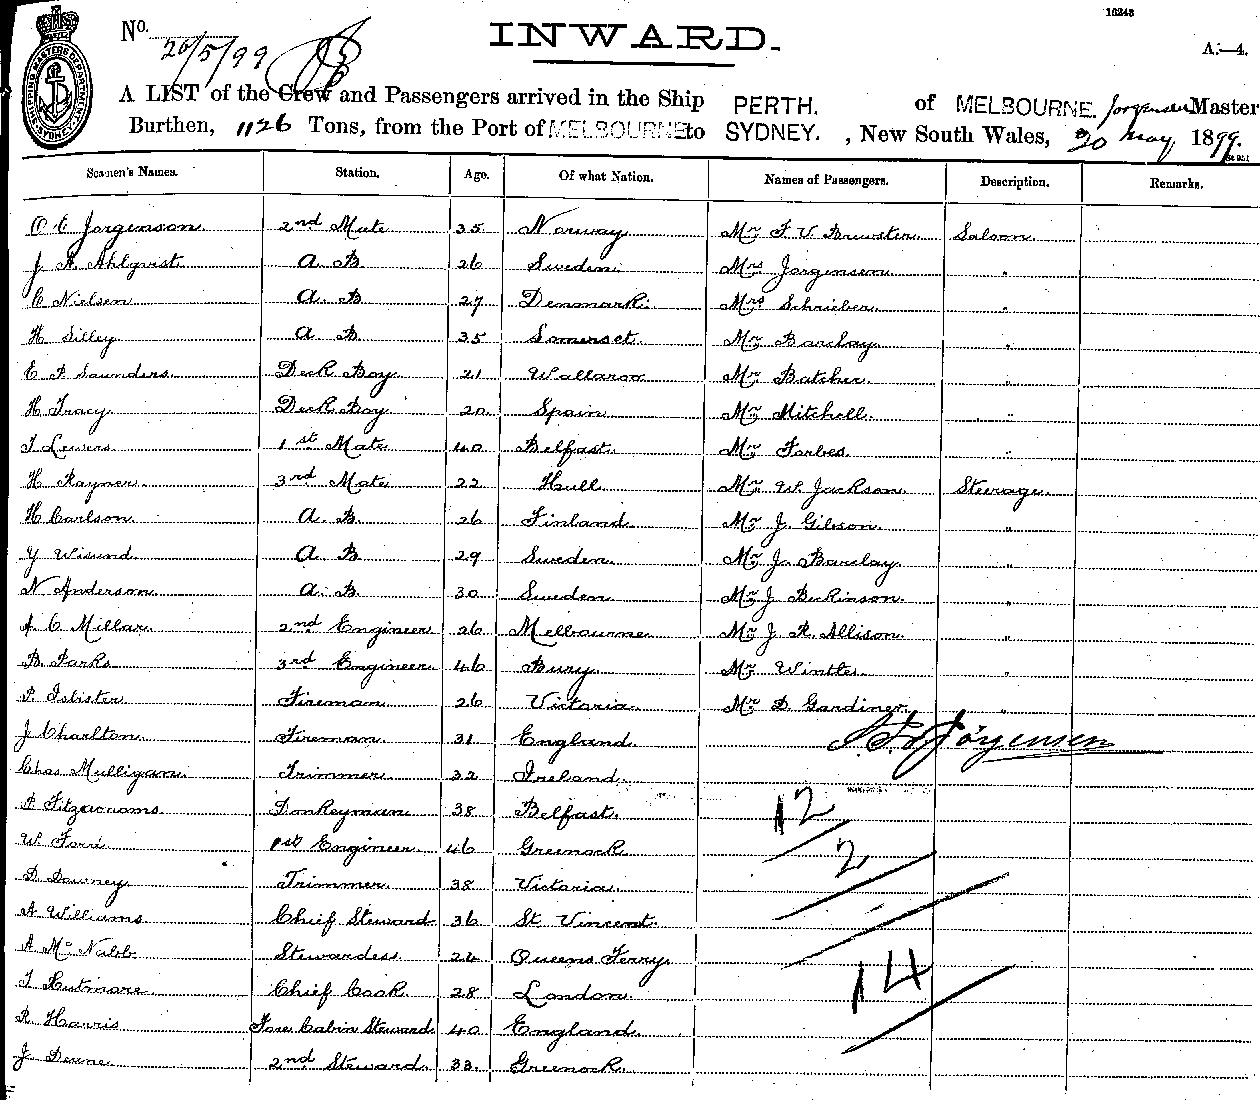 16248
No. 20/5/99
INWARD.
A.—4.
A LIST of the Crew and Passengers arrived in the Ship PERTH. of MELBOURNE. Jorgensen Master
Burthen, 1126 Tons, from the Port of MELBOURNE to SYDNEY. , New South Wales, 20 May 1899.
Seamen's Names. Station. Age. Of what Nation. Names of Passengers. Description. Remarks.
O E Jorgenson 2nd Mate 35 Norway Mr F V Brewster Saloon
J A Ahlqvist A B 26 Sweden Mrs Jorgensen "
C Nielsen A B 27 Denmark Mrs Schrieber "
H Silley A B 35 Somerset Mr Barclay "
E P Saunders Deck Boy 21 Wallaroo Mr Batcher "
H Tracy Deck Boy 20 Spain Mr Mitchell "
T Lewers 1st Mate 40 Belfast Mr Forbes "
H Rayner 3rd Mate 22 Hull Mr W. Jackson Steerage
H Carlson A. B. 26 Finland Mr J. Gibson "
Y Wisund A B 29 Sweden Mr J. Barclay "
N Anderson A. B 30 Sweden Mr J Berkinson "
A C Millar 2nd Engineer 26 Melbourne Mr J R. Allison "
B. Parks 3rd Engineer 46 Bury Mr Wintle "
P. Isbister Fireman 26 Victoria Mr D. Gardiner "
J Charlton Fireman 31 England Jörgensen
Chas Mulligan Trimmer 32 Ireland
P Donkeyman 38 Belfast 12
W. Ford 1st Engineer 46 Greenock 2
D Downey Trimmer 38 Victoria
A Williams Chief Steward 36 St. Vincent
A McNabb Stewardess 24 Queens Ferry 14
T Chief Cook 28 London
R Harris Fore Cabin Steward 40 England
J Deane 2nd Steward 33 Greenock